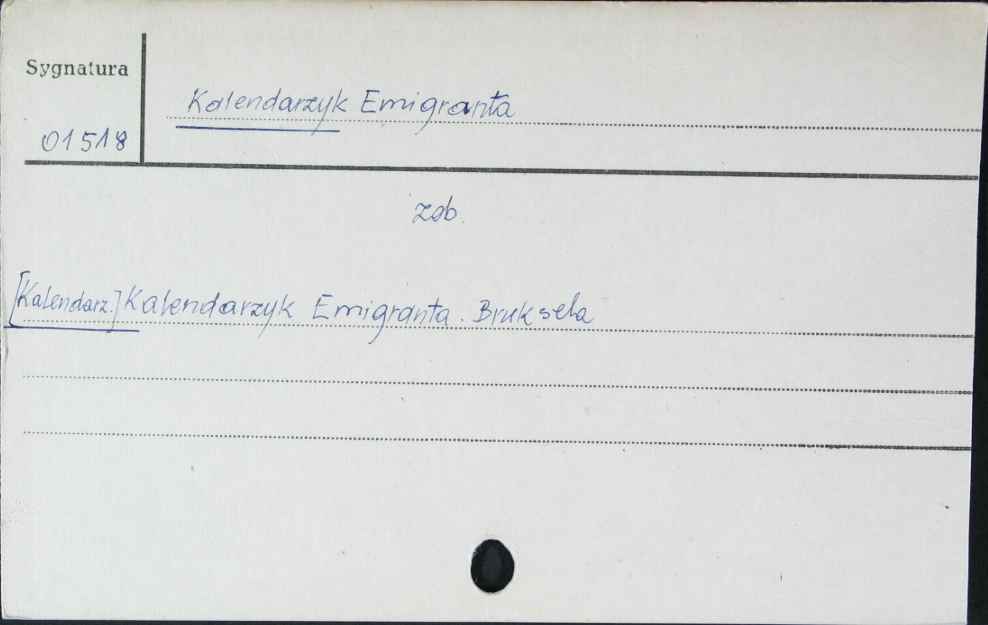 Sygnatura
Kalendarzyk Emigranta
01518
zob.
[Kalendarz.] Kalendarzyk Emigranta. Bruksela